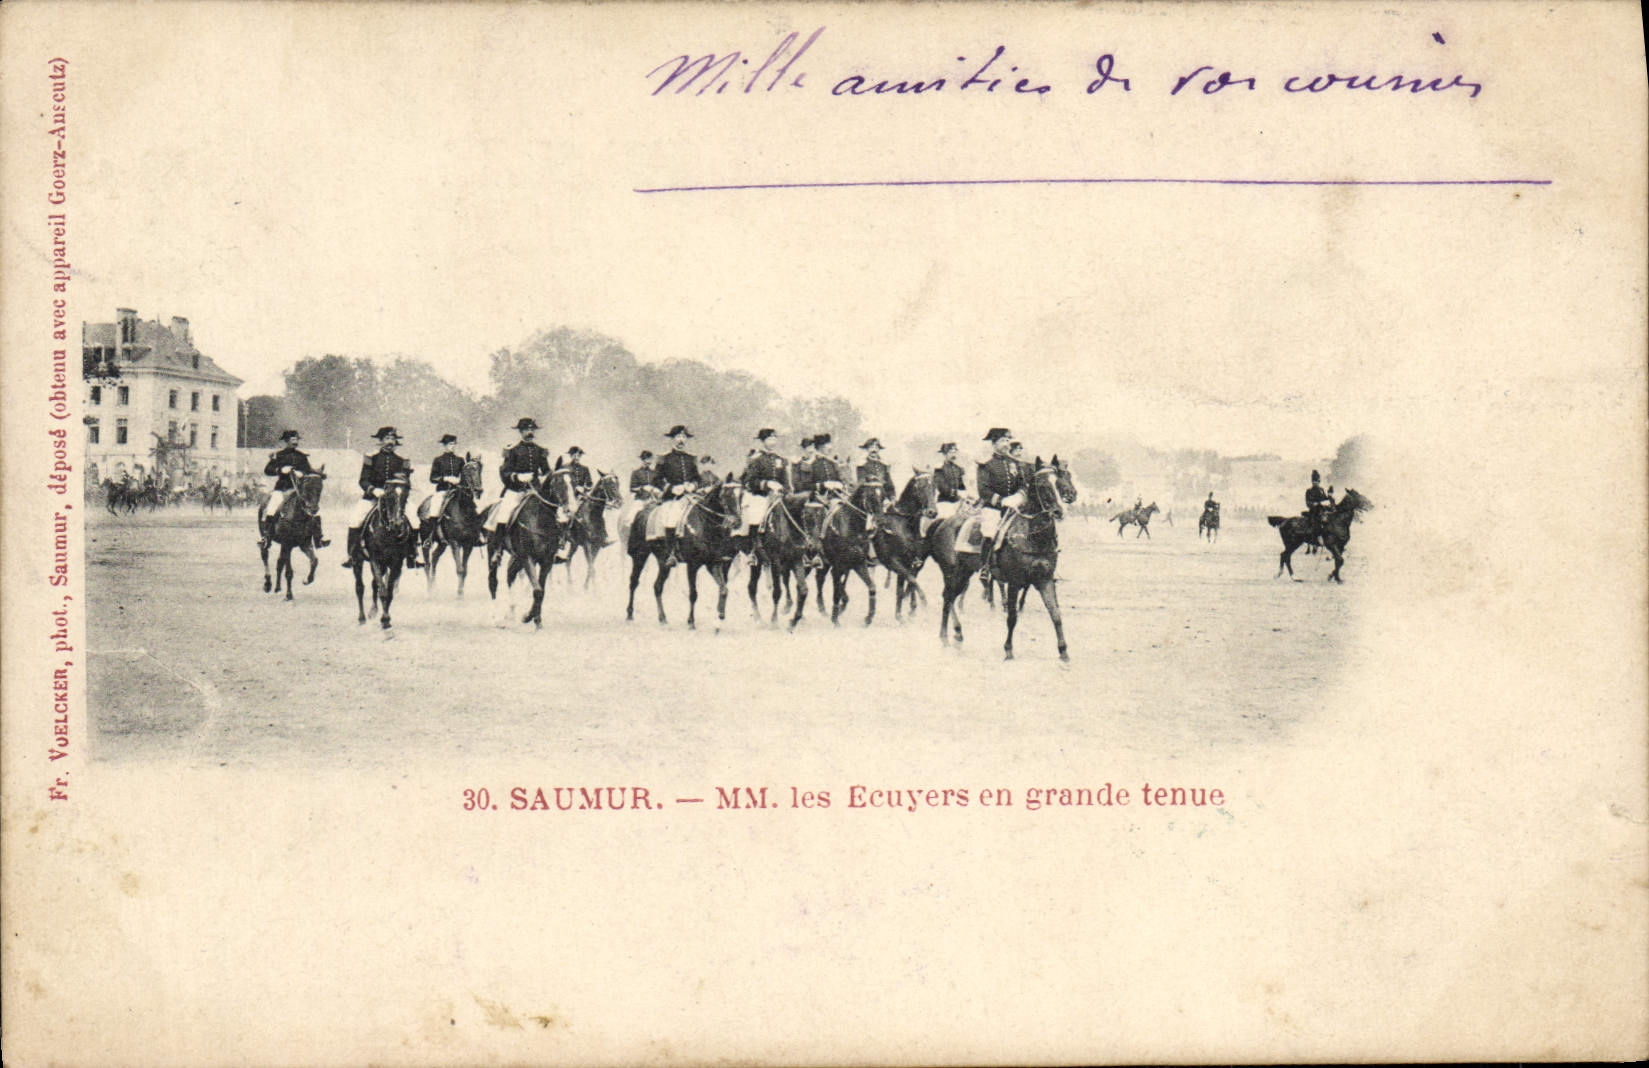 Mille amitiés de vos cousines
Fr. VOELCKER, phot., Saumur, déposé (obtenu avec appareil Goerz-Anscutz)
30. SAUMUR. — MM. les Ecuyers en grande tenue